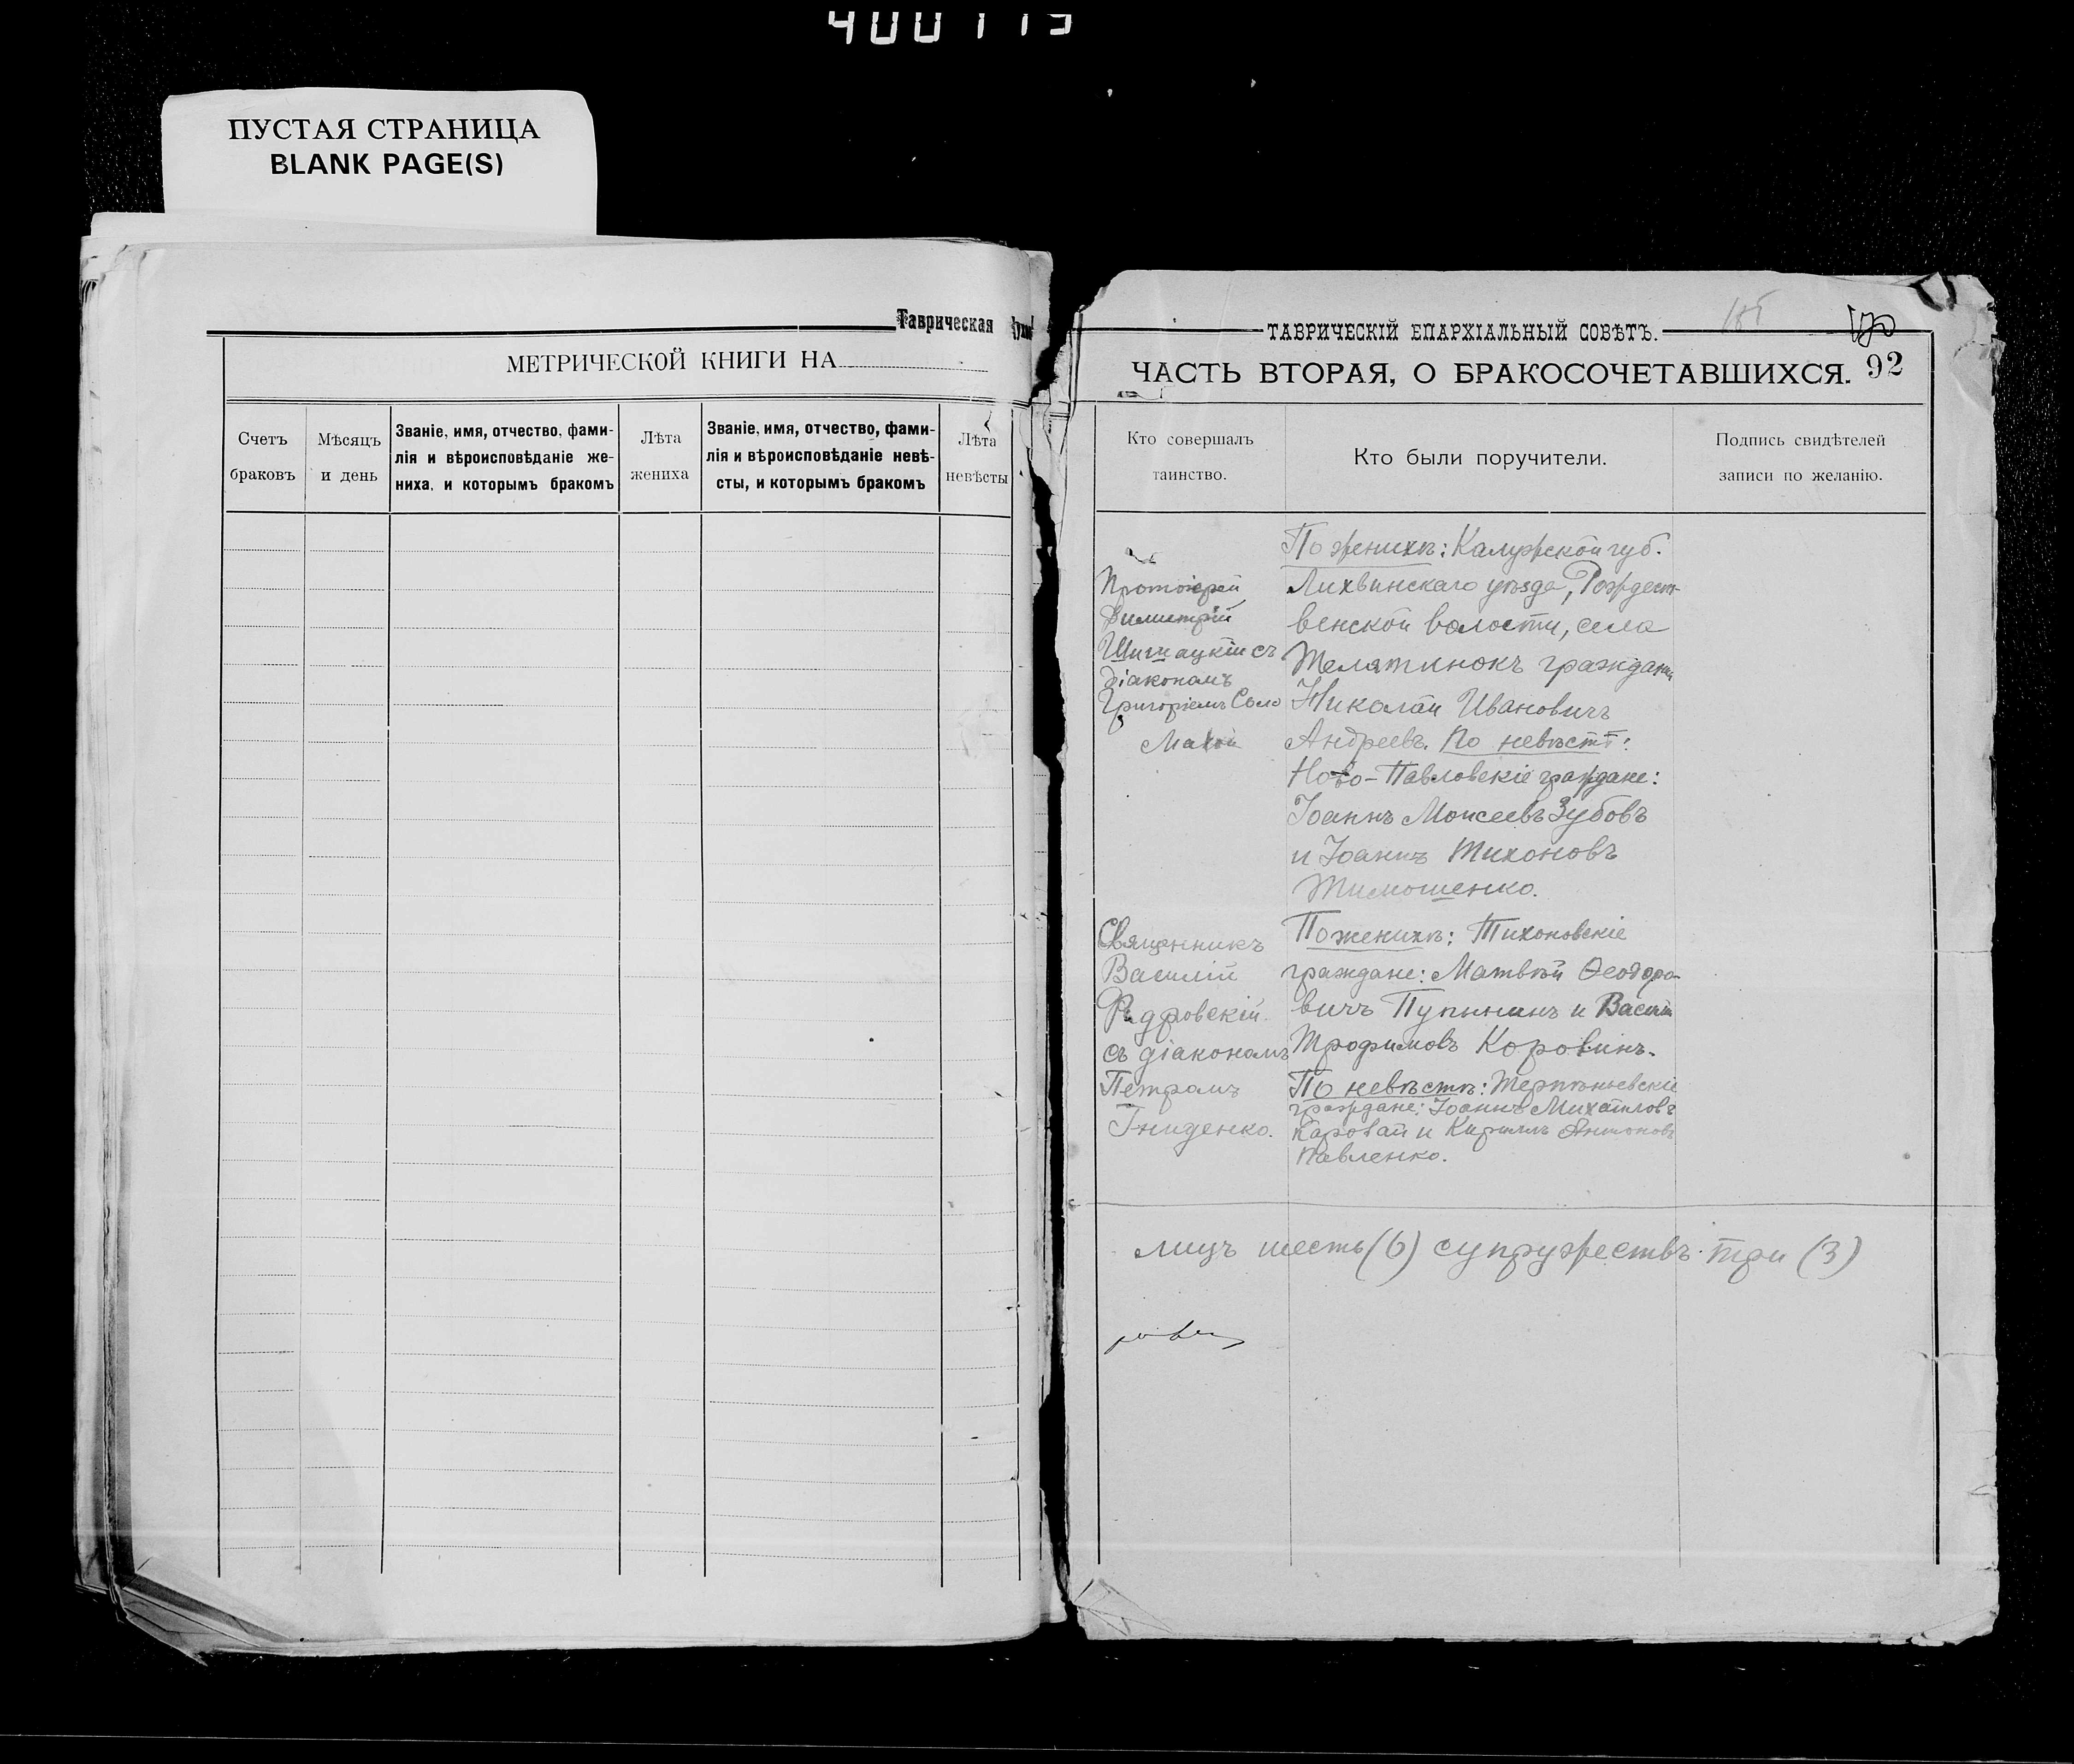 ПУСТАЯ СТРАНИЦА
BLANK PAGE(S)
Таврическая
МЕТРИЧЕСКОЙ КНИГИ НА
Счетъ
браковъ
Мѣсяцъ
и день
Званіе, имя, отчество, фами-
лія и вѣроисповѣданіе же-
ниха, и которымъ бракомъ
Лѣта
жениха
Званіе, имя, отчество, фами-
лія и вѣроисповѣданіе невѣ-
сты, и которымъ бракомъ
Лѣта
невѣсты
ТАВРИЧЕСКІЙ ЕПАРХІАЛЬНЫЙ СОВѢТЪ.
ЧАСТЬ ВТОРАЯ, О БРАКОСОЧЕТАВШИХСЯ.
92
Кто совершалъ
таинство.
Кто были поручители.
Подпись свидѣтелей
записи по желанію.
Протоіерей
Димитрій
съ
діакономъ
Григоріемъ
По женихѣ: Калужской губ.
Лихвинскаго уѣзда, Рождест-
венской волости, села
Телятинокъ
Николай Ивановичъ
Андреевъ. По невѣстѣ:
Ново-Павловскіе граждане:
Іоаннъ Моисеевъ Зубовъ
и Іоаннъ Тихоновъ
Тимошенко.
Священникъ
Василій
съ діакономъ
Петромъ
Гниденко.
По женихѣ: Тихоновскіе
граждане: Матвѣй Ѳеодоро-
вичъ Пупынинъ и
Трофимовъ Коровинъ.
По невѣстѣ: Терпѣньевскіе
граждане: Іоаннъ Михайловъ
Каровай и Кириллъ Антоновъ
Павленко.
лицъ шесть (6) супружествъ три (3)